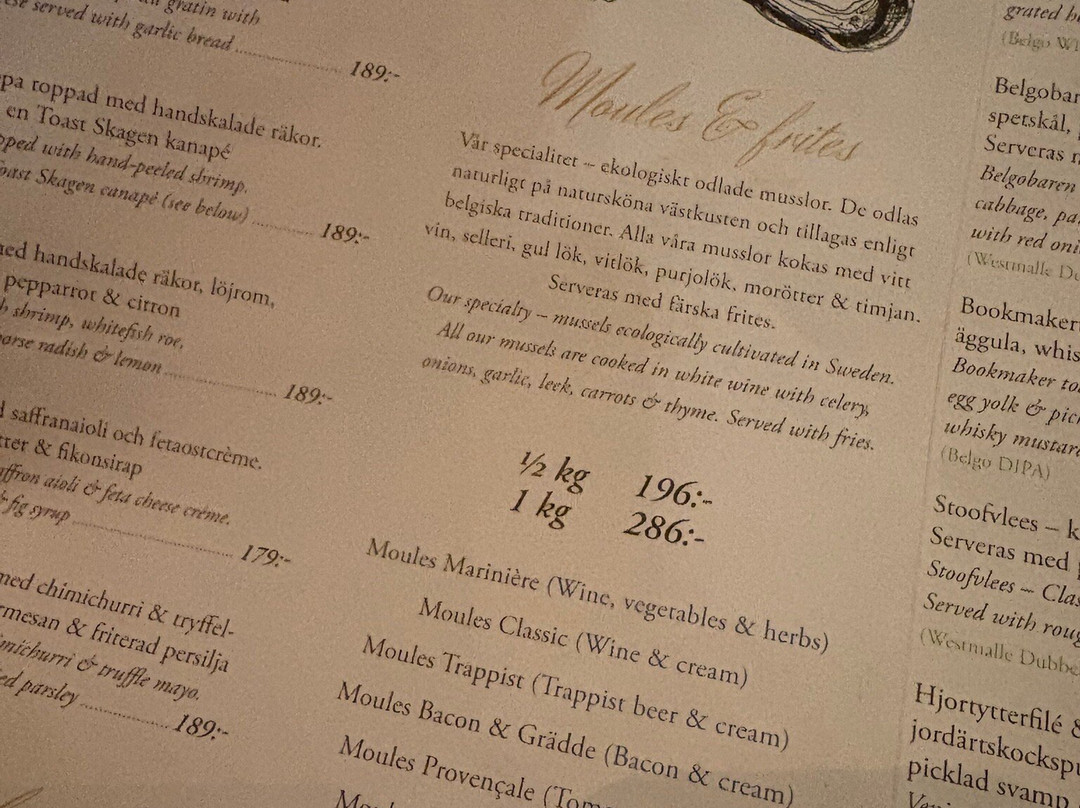 gratin with
served with garlic bread 189:-
pa toppad med handskalade räkor.
en Toast Skagen kanapé
pped with hand-peeled shrimp.
oast Skagen canapé (see below) 189:-
ed handskalade räkor, löjrom,
pepparrot & citron
shrimp, whitefish roe,
orse radish & lemon 189:-
saffranaioli och fetaostcrème.
tter & fikonsirap
affron aioli & feta cheese crème.
& fig syrup 179:-
med chimichurri & tryffel-
rmesan & friterad persilja
michurri & truffle mayo.
ed parsley 189:-
Moules & frites
Vår specialitet – ekologiskt odlade musslor. De odlas
naturligt på natursköna västkusten och tillagas enligt
belgiska traditioner. Alla våra musslor kokas med vitt
vin, selleri, gul lök, vitlök, purjolök, morötter & timjan.
Serveras med färska frites.
Our specialty – mussels ecologically cultivated in Sweden.
All our mussels are cooked in white wine with celery,
onions, garlic, leek, carrots & thyme. Served with fries.
½ kg 196:-
1 kg 286:-
Moules Marinière (Wine, vegetables & herbs)
Moules Classic (Wine & cream)
Moules Trappist (Trappist beer & cream)
Moules Bacon & Grädde (Bacon & cream)
Moules Provençale (Tom
grated
(Belgo
Belgobar
spetskål,
Serveras
Belgobaren
cabbage, pa
with red oni
(Westmalle
Bookmaker
äggula, whis
Bookmaker to
egg yolk & pic
whisky mustar
(Belgo DIPA)
Stoofvlees – k
Serveras med
Stoofvlees – Clas
Served with roug
(Westmalle Dubbe
Hjortytterfilé &
jordärtskockspu
picklad svamp